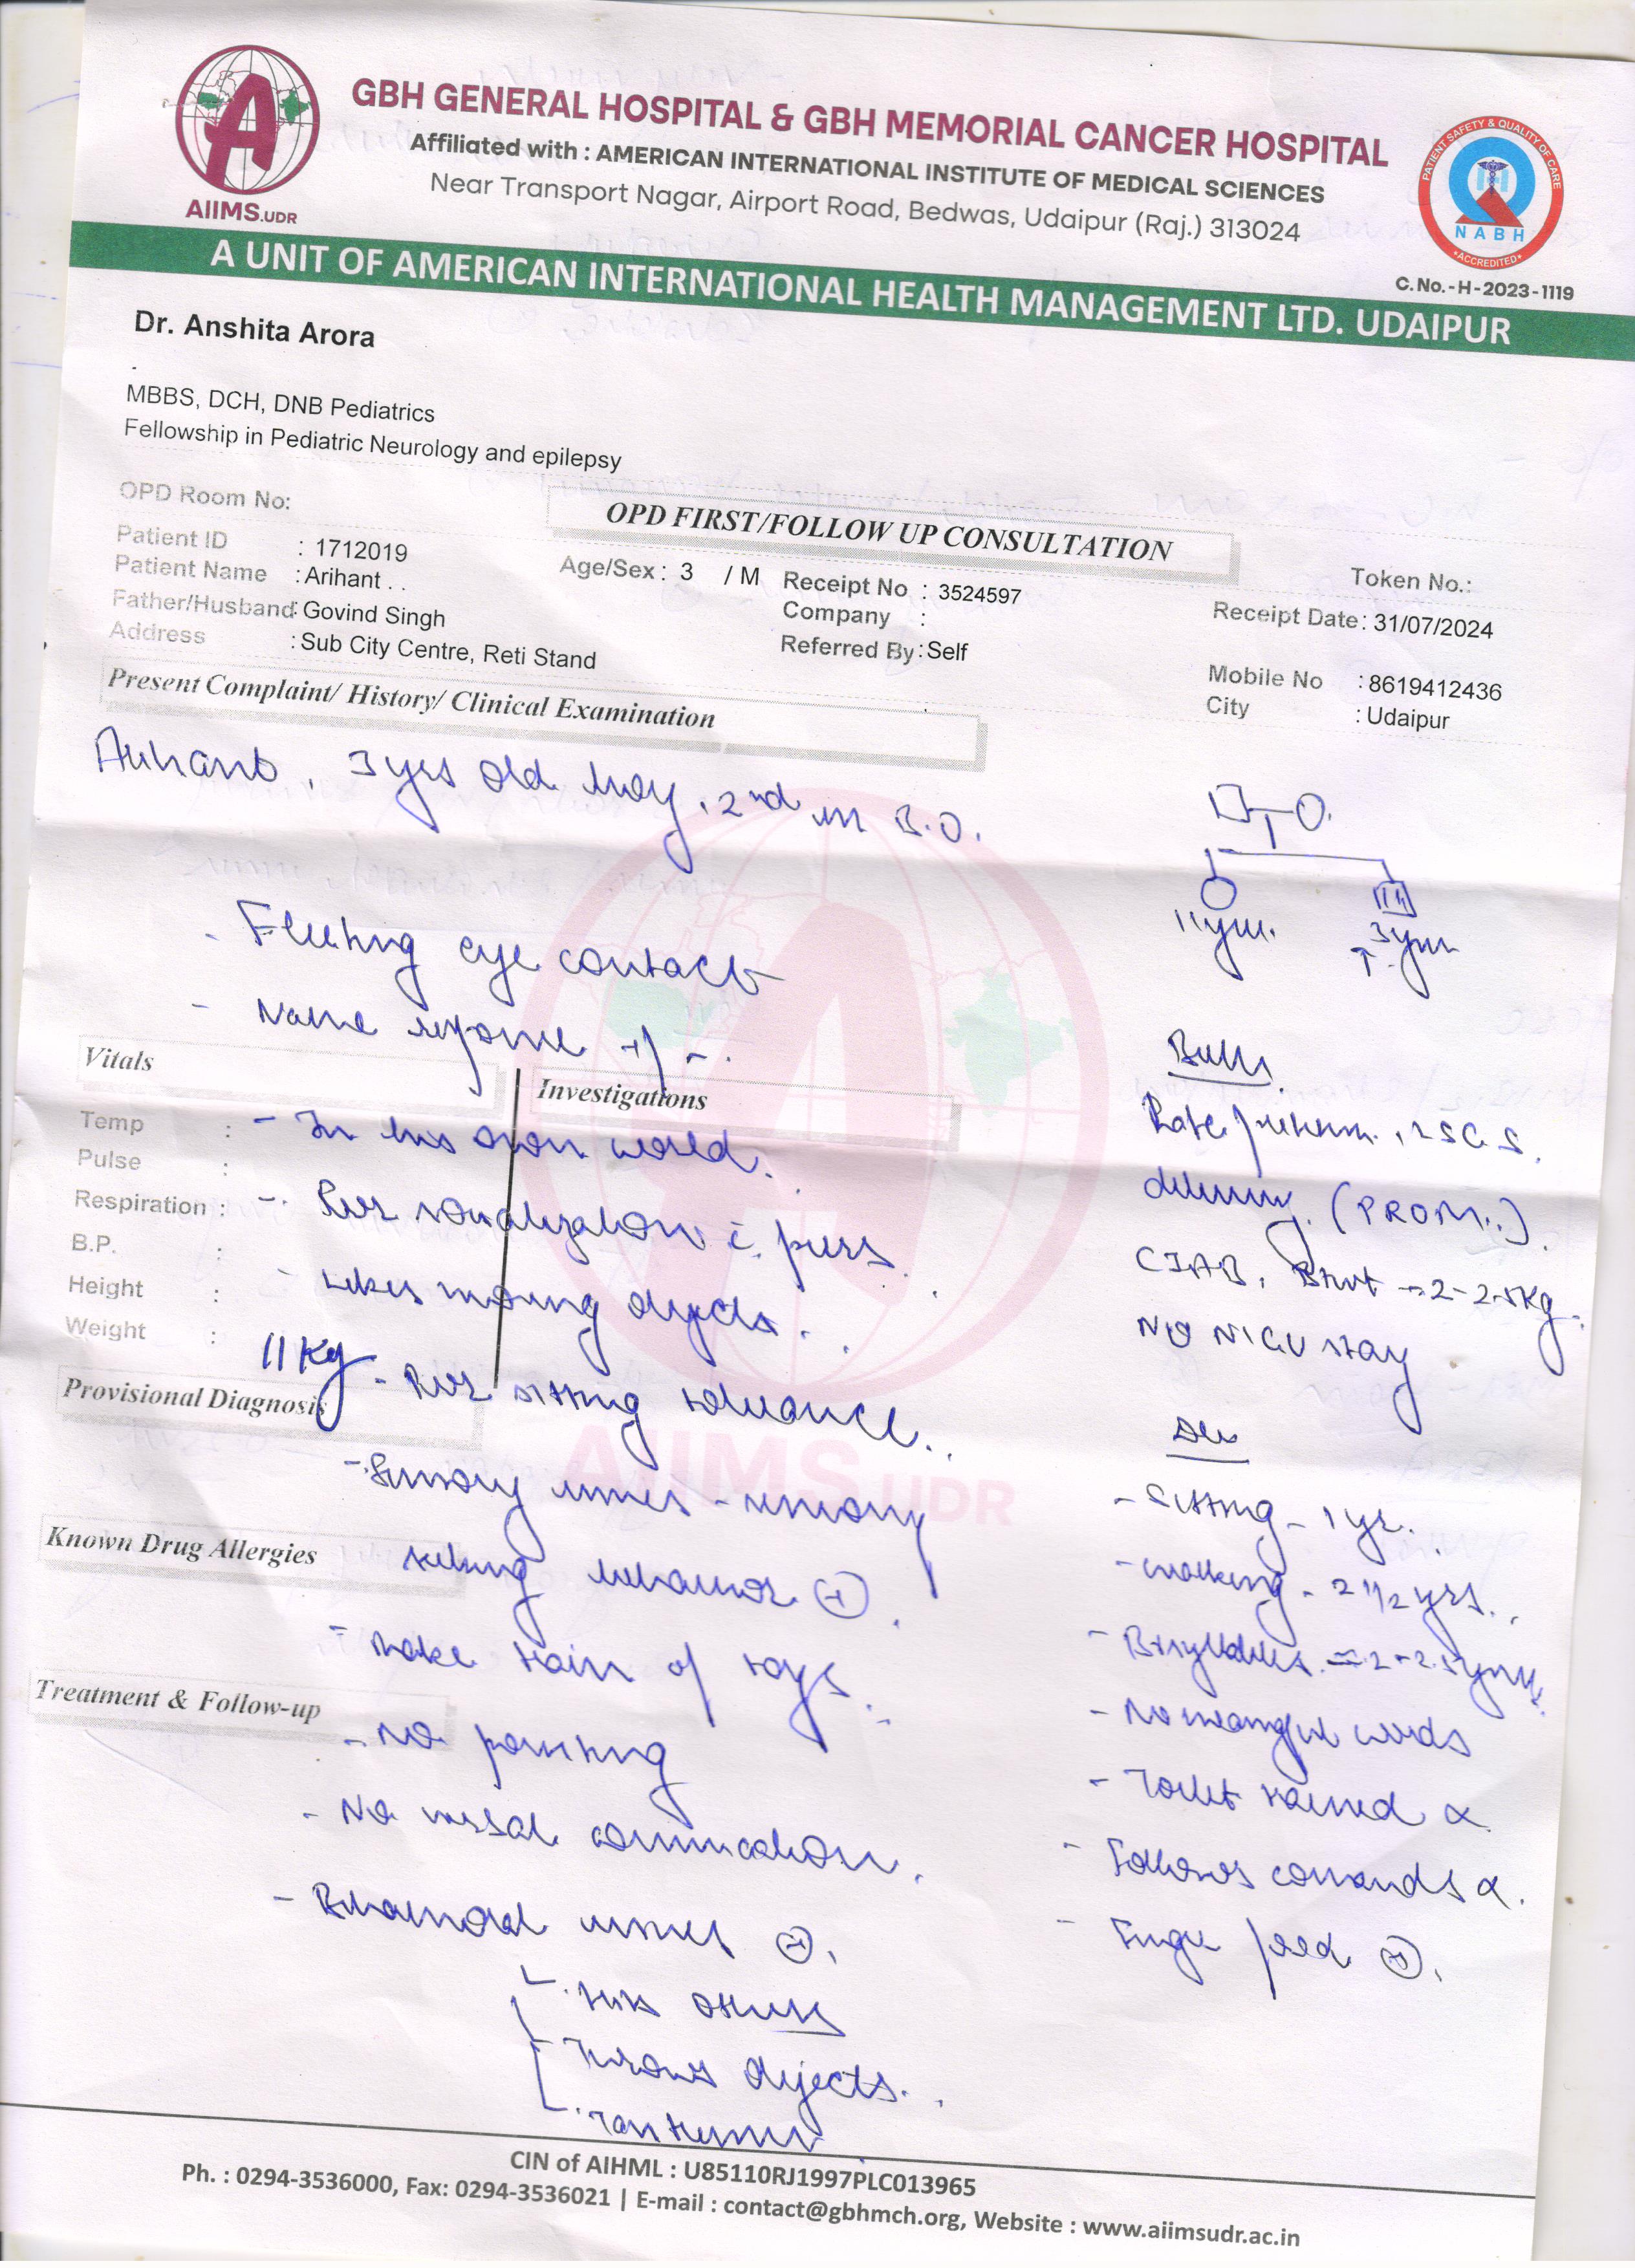 GBH GENERAL HOSPITAL & GBH MEMORIAL CANCER HOSPITAL
Affiliated with : AMERICAN INTERNATIONAL INSTITUTE OF MEDICAL SCIENCES
Near Transport Nagar, Airport Road, Bedwas, Udaipur (Raj.) 313024
AIIMS.UDR
PATIENT SAFETY & QUALITY OF CARE
NABH
ACCREDITED
C.No.-H-2023-1119
A UNIT OF AMERICAN INTERNATIONAL HEALTH MANAGEMENT LTD. UDAIPUR
Dr. Anshita Arora
MBBS, DCH, DNB Pediatrics
Fellowship in Pediatric Neurology and epilepsy
OPD Room No:
OPD FIRST/FOLLOW UP CONSULTATION
Token No.:
Patient ID : 1712019
Patient Name : Arihant . .
Age/Sex : 3 / M
Receipt No : 3524597
Receipt Date : 31/07/2024
Father/Husband: Govind Singh
Company :
Address : Sub City Centre, Reti Stand
Referred By : Self
Mobile No : 8619412436
City : Udaipur
Present Complaint/ History/ Clinical Examination
Arihant, 3 yrs old boy, 2nd in B.O.
11 yrs. 3 yrs
- Fleeting eye contact
- Name response +/-.
Vitals
Investigations
Temp :
Pulse :
Respiration :
B.P. :
Height :
Weight : 11 Kg
- In his own world.
- Poor socialization c̄ peers
- Likes moving objects.
- Poor sitting tolerance.
Provisional Diagnosis
- Sensory issues - sensory
seeking behavior (+).
Known Drug Allergies
- Make train of toys.
Treatment & Follow-up
- No pointing
- No verbal communication.
- Behavioral issues (+).
- hits others
- Throws objects.
- Tantrums
Birth
Late preterm, LSCS
delivery. (PROM..)
CIAB, B.wt - 2-2.5 Kg.
No NICU stay
Dev
- Sitting - 1 yr.
- Walking - 2 1/2 yrs.
- Bisyllables - 2-2.5 years
- No meaningful words
- Toilet trained x
- Follows comands x.
- Finger feed (+).
AIIMS.UDR
CIN of AIHML : U85110RJ1997PLC013965
Ph. : 0294-3536000, Fax: 0294-3536021 | E-mail : contact@gbhmch.org, Website : www.aiimsudr.ac.in